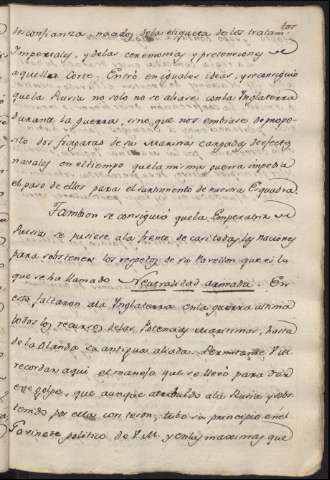 desconfianza, nacidos de las etiquetas de los tratam.tos
Imperiales, y de las ceremonias y pretensiones de
aquella Corte. Entró en iguales ideas, y se consiguió
que la Rusia no solo no se aliase con la Inglaterra
durante la guerra, sino que nos embiase de propo-
sito dos fragatas de su Marina cargadas de efectos
navales en el tiempo que la misma guerra impedia
el paso de ellos para el surtimiento de nuestra Esquadra.
Tambien se consiguió que la Emperatriz de
Rusia se pusiese ala frente de casi todas las naciones
para sobstener los respetos de su Pavellon que es lo
que se ha llamado Neutralidad armada. En
esto faltaron ala Inglaterra en la guerra ultima
todos los recursos de las Potencias maritimas, hasta
de la Olanda su antigua aliada. Permitame V.M.
recordar aqui el manejo que se llevó para dar
este golpe, que aunque atribuido ala Rusia y sobs-
tenido por ella con teson, tubo su principio en el
Gavinete politico de V.M. y en las maximas que